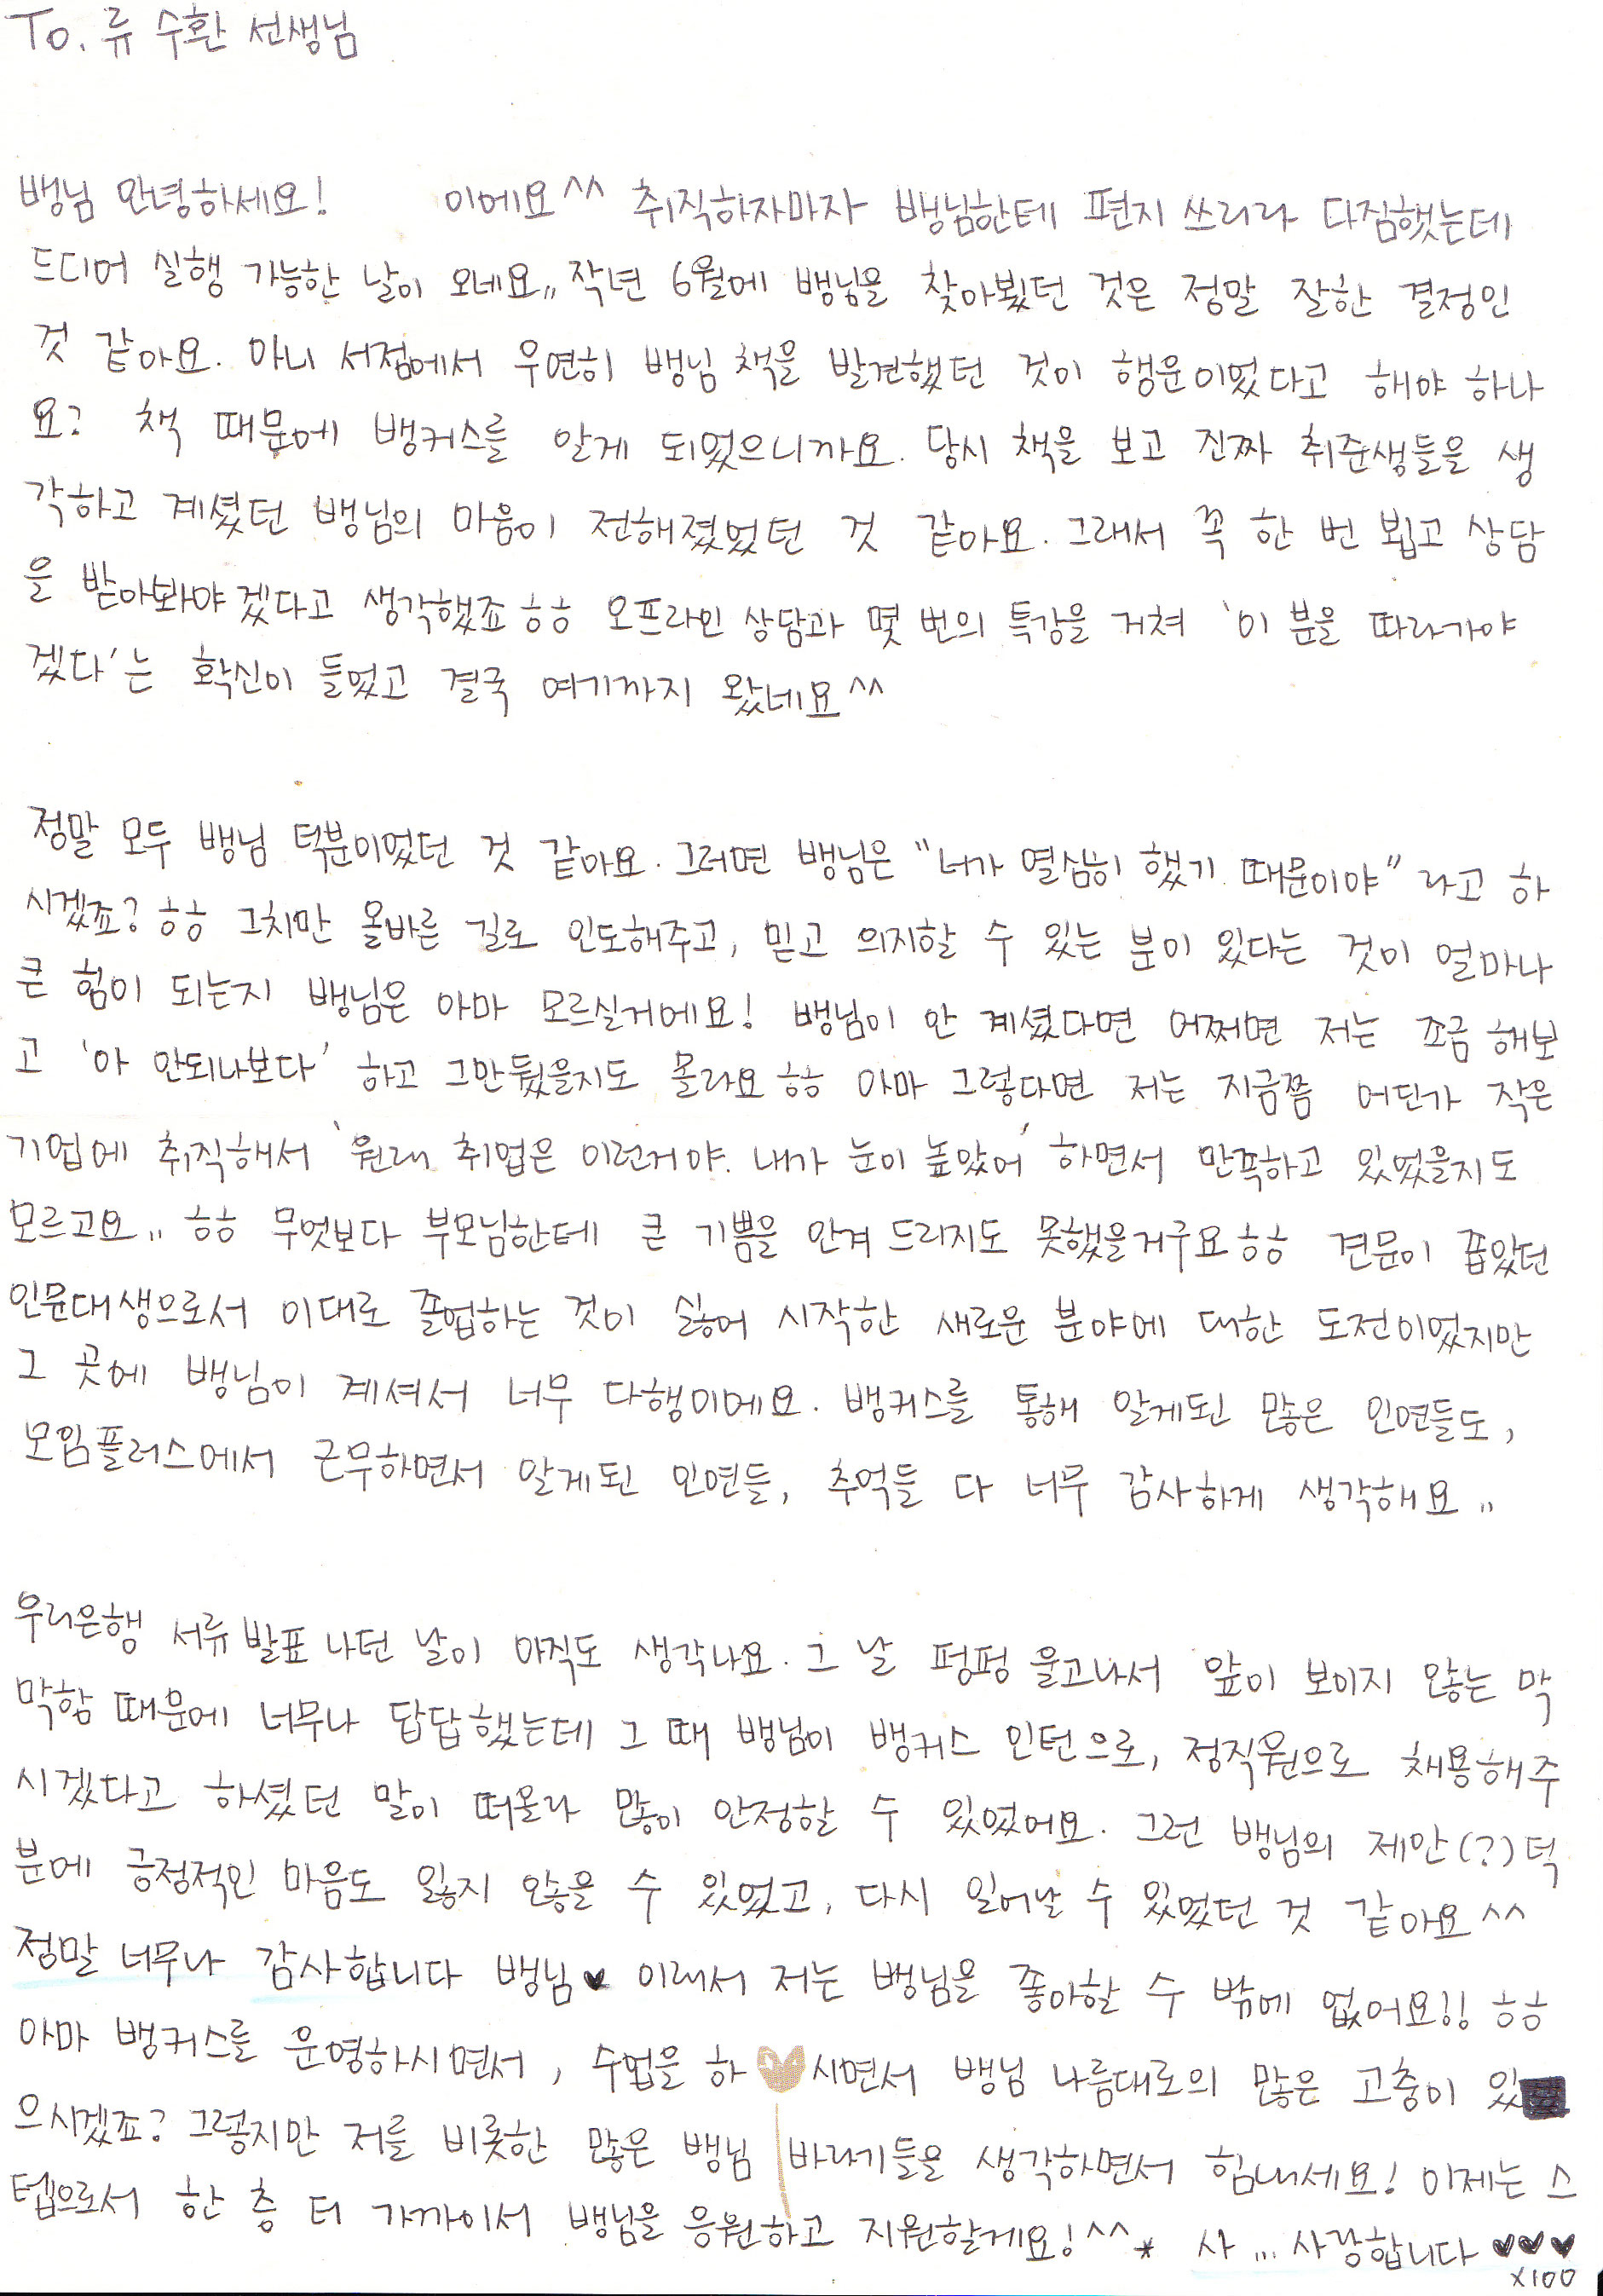 To. 류수환 선생님
뱅님 안녕하세요! 이에요^^ 취직하자마자 뱅님한테 편지 쓰리라 다짐했는데
드디어 실행 가능한 날이 오네요,, 작년 6월에 뱅님을 찾아뵀던 것은 정말 잘한 결정인
것 같아요. 아니 서점에서 우연히 뱅님 책을 발견했던 것이 행운이었다고 해야 하나
요? 책 때문에 뱅커스를 알게 되었으니까요. 당시 책을 보고 진짜 취준생들을 생
각하고 계셨던 뱅님의 마음이 전해졌었던 것 같아요. 그래서 꼭 한 번 뵙고 상담
을 받아봐야겠다고 생각했죠ㅎㅎ 오프라인 상담과 몇 번의 특강을 거쳐 '이 분을 따라가야
겠다'는 확신이 들었고 결국 여기까지 왔네요^^
정말 모두 뱅님 덕분이었던 것 같아요. 그러면 뱅님은 "너가 열심히 했기 때문이야"라고 하
시겠죠? ㅎㅎ 그치만 올바른 길로 인도해주고, 믿고 의지할 수 있는 분이 있다는 것이 얼마나
큰 힘이 되는지 뱅님은 아마 모르실거에요! 뱅님이 안 계셨다면 어쩌면 저는 조금 해보
고 '아 안되나보다' 하고 그만뒀을지도 몰라요ㅎㅎ 아마 그렇다면 저는 지금쯤 어딘가 작은
기업에 취직해서 '원래 취업은 이런거야. 내가 눈이 높았어' 하면서 만족하고 있었을지도
모르고요,, ㅎㅎ 무엇보다 부모님한테 큰 기쁨을 안겨 드리지도 못했을거구요ㅎㅎ 견문이 좁았던
인문대생으로서 이대로 졸업하는 것이 싫어 시작한 새로운 분야에 대한 도전이었지만
그 곳에 뱅님이 계셔서 너무 다행이에요. 뱅커스를 통해 알게된 많은 인연들도,
모임플러스에서 근무하면서 알게된 인연들, 추억들 다 너무 감사하게 생각해요,,
우리은행 서류발표 나던 날이 아직도 생각나요. 그 날 펑펑 울고나서 앞이 보이지 않는 막
막함 때문에 너무나 답답했는데 그 때 뱅님이 뱅커스 인턴으로, 정직원으로 채용해주
시겠다고 하셨던 말이 떠올라 많이 안정할 수 있었어요. 그런 뱅님의 제안(?)덕
분에 긍정적인 마음도 잃지 않을 수 있었고, 다시 일어날 수 있었던 것 같아요^^
정말 너무나 감사합니다 뱅님♥ 이래서 저는 뱅님을 좋아할 수 밖에 없어요!! ㅎㅎ
아마 뱅커스를 운영하시면서, 수업을 하시면서 뱅님 나름대로의 많은 고충이 있
으시겠죠? 그렇지만 저를 비롯한 많은 뱅님 바라기들을 생각하면서 힘내세요! 이제는 스
텝으로서 한 층 더 가까이서 뱅님을 응원하고 지원할게요!^^* 사... 사랑합니다 ♥♥♥
x100